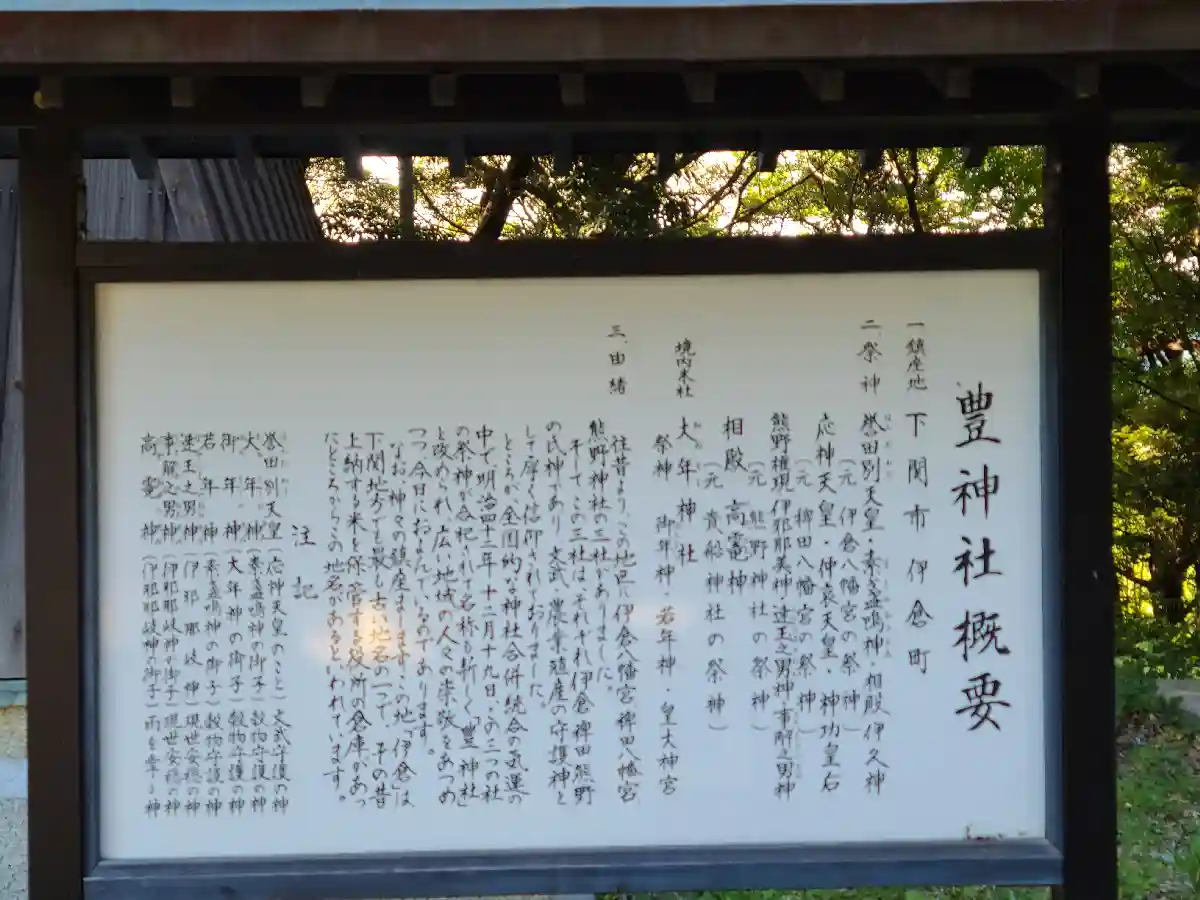 豊神社概要
一 鎮座地 下関市伊倉町
二 祭神 誉田別天皇・素盞鳴神・相殿伊久神
(元 伊倉八幡宮の祭神)
応神天皇・仲哀天皇・神功皇后
(元 稗田八幡宮の祭神)
熊野権現伊耶那美神・速玉之男神・事解之男神
(元 熊野神社の祭神)
相殿 高龗神
(元 貴船神社の祭神)
境内末社 大年神社
祭神 御年神・若年神・皇大神宮
三 由緒
往昔より、この地区に伊倉八幡宮、稗田八幡宮
熊野神社の三社がありました。
そしてこの三社は、それぞれ伊倉、稗田、熊野
の氏神であり、文武・農業殖産の守護神と
して厚く信仰されておりました。
ところが全国的な神社合併統合の気運の
中で、明治四十二年十二月十九日、この三つの社
の祭神が合祀されて名称も新しく「豊神社」
と改められ、広い地域の人々の崇敬をあつめ
つつ今日におよんでいるのであります。
なお、神々の鎮座まします、この地「伊倉」は
下関地方でも最も古い地名の一つで、その昔
上納する米を保管する役所の倉庫があっ
たところからこの地名があるといわれています。
注記
誉田別天皇(応神天皇のこと)文武守護の神
大年神(素盞鳴神の御子)穀物守護の神
御年神(大年神の御子)穀物守護の神
若年神(素盞鳴神の御子)穀物守護の神
速玉之男神(伊耶那岐神)現世安穏の神
事解之男神(伊耶那岐神の御子)現世安穏の神
高龗神(伊耶那岐神の御子)雨を幸う神